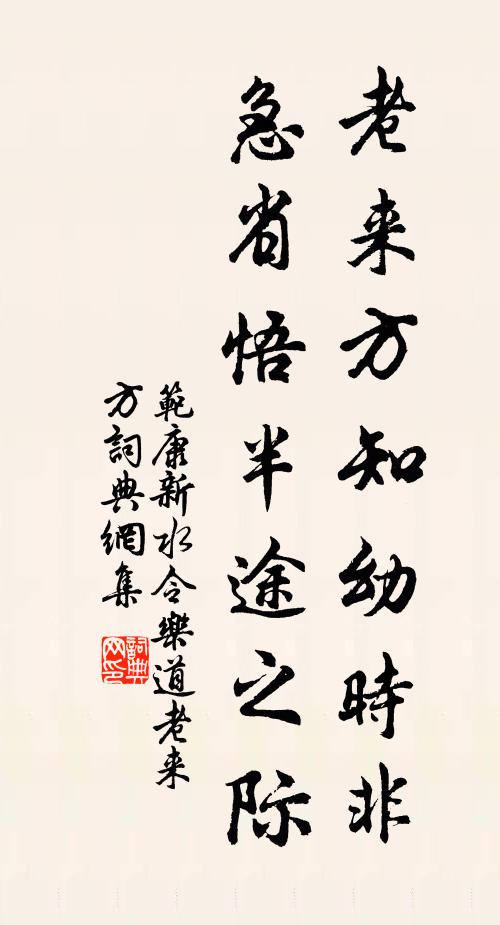 老来方知幼時非
急省悟半途之际
範康新水令樂道老来
方詞典網集
詞典
网印